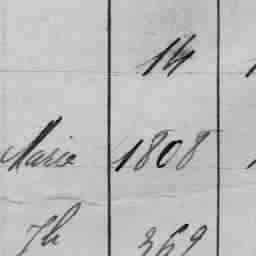 14
Marie 1808
Jh 369